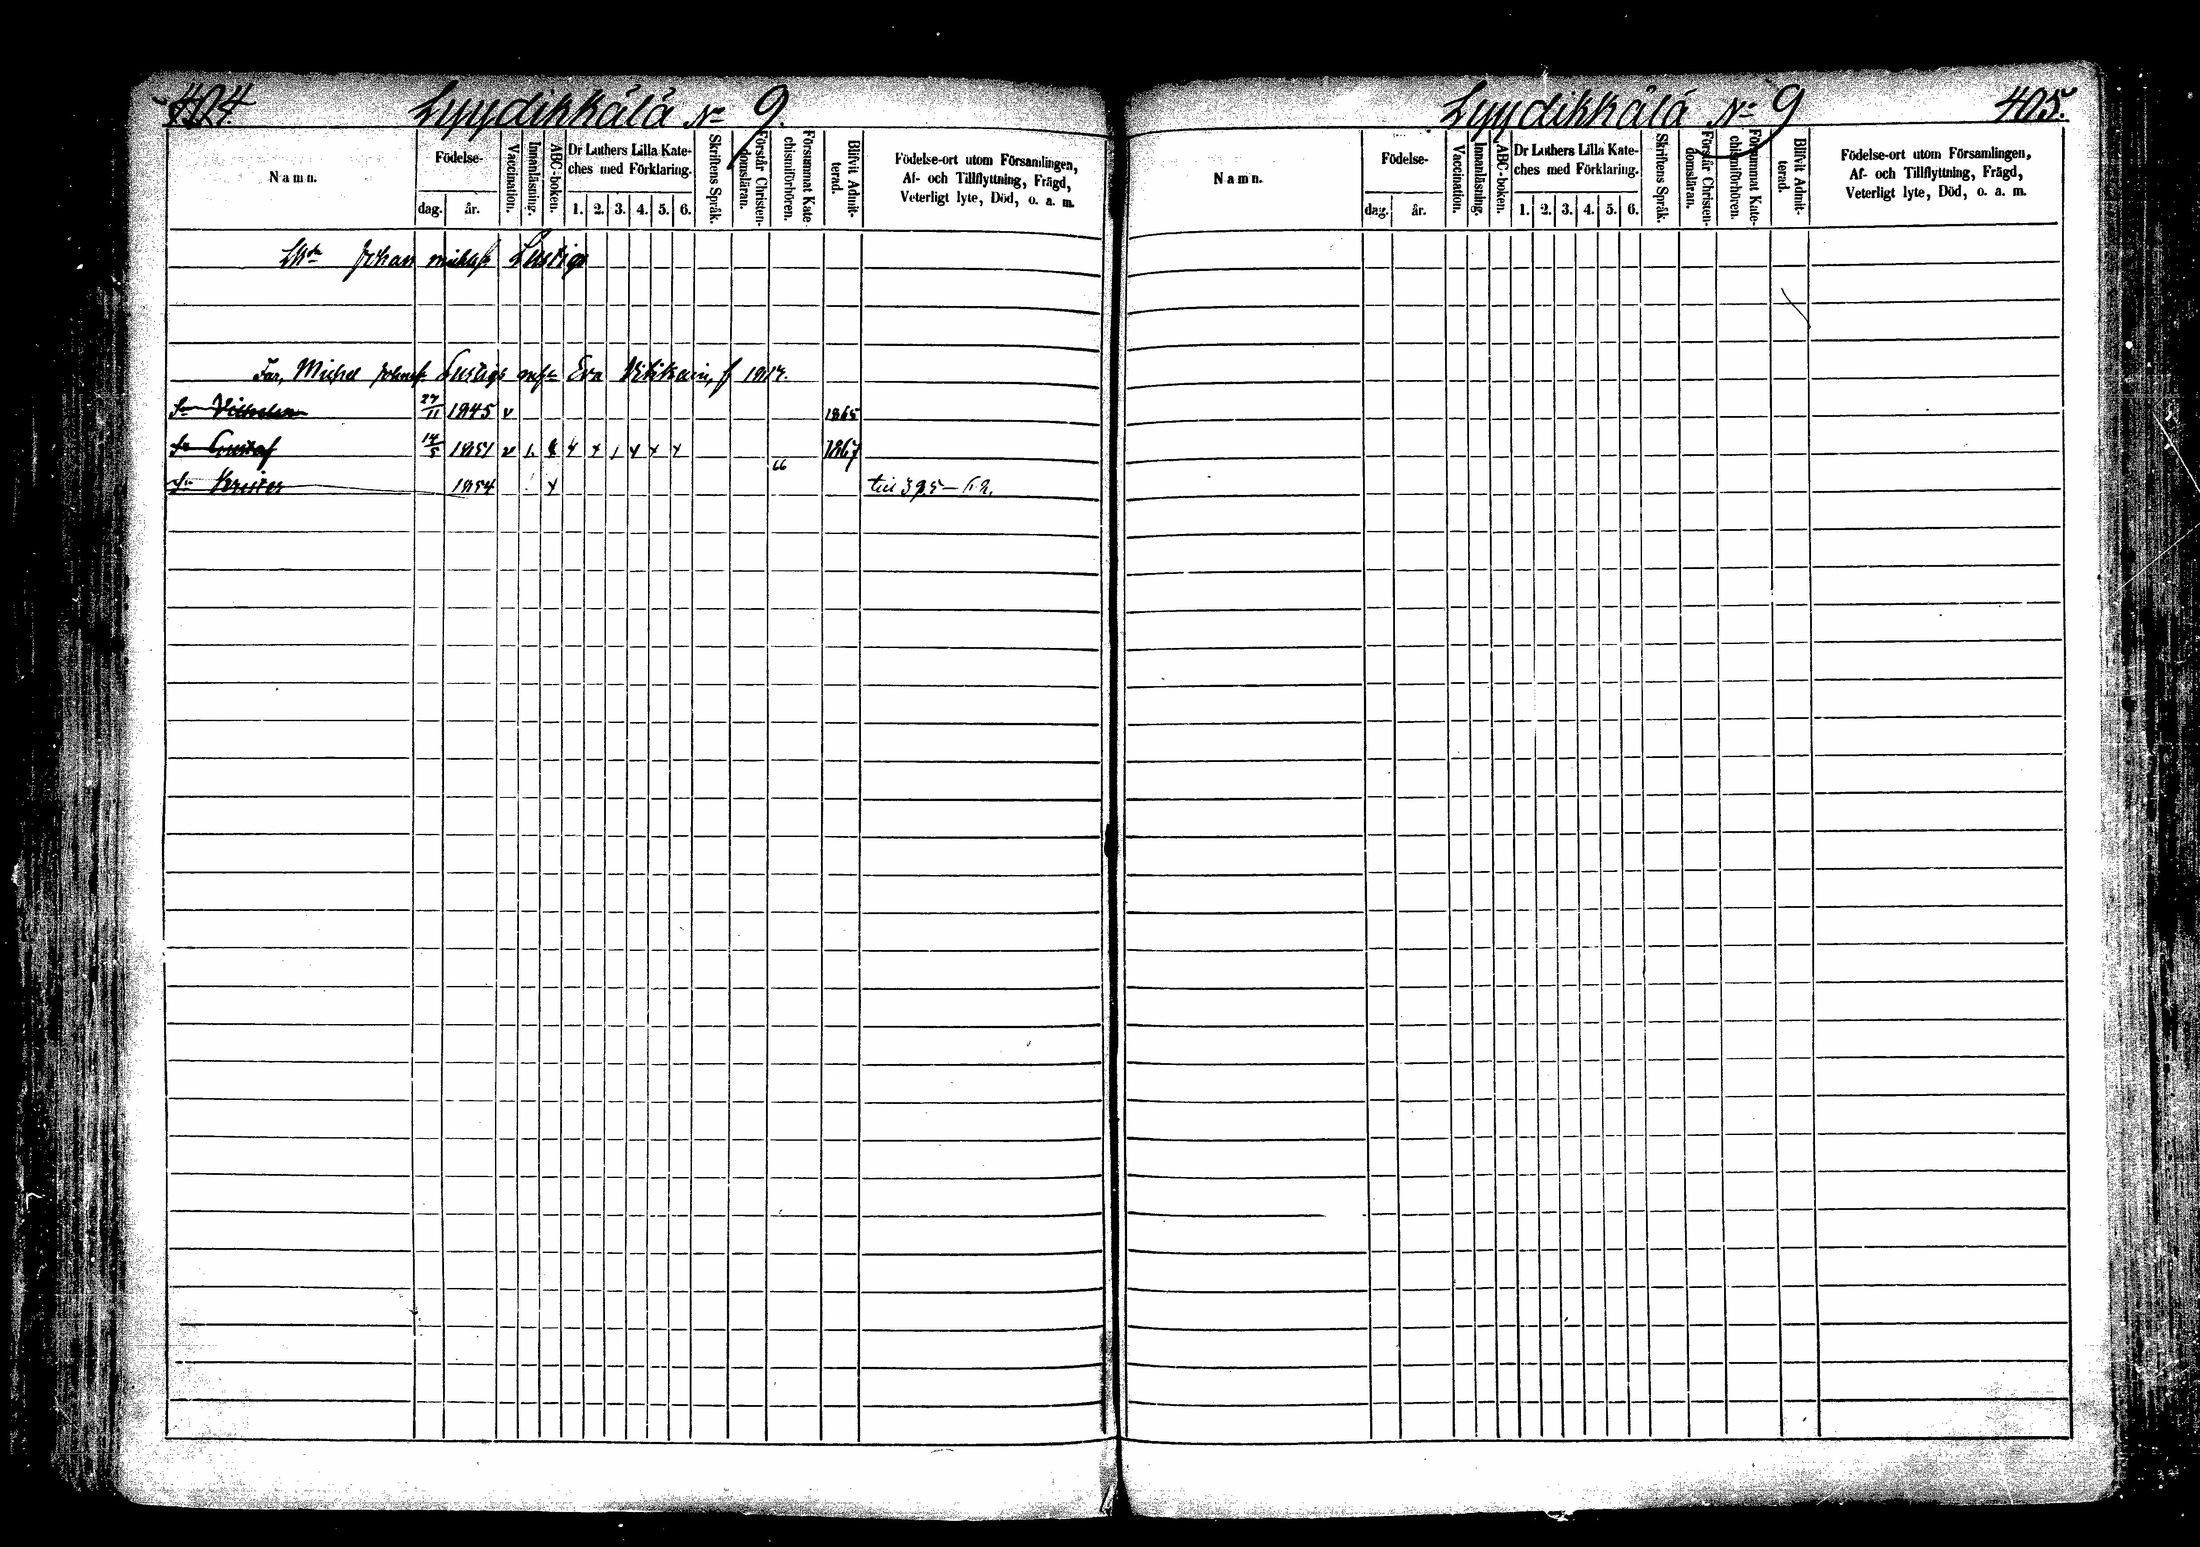 404 Lyydikkälä No 9.
Namn.
Födelse-
dag. år.
Vaccination.
Innanläsning.
ABC-boken.
Dr Luthers Lilla Kate-
ches med Förklaring.
1. 2. 3. 4. 5. 6.
Skriftens Språk.
Förstår Christen-
domsläran.
Försummat Kate-
chismiförhören.
Blifvit Admit-
terad.
Födelse-ort utom Församlingen,
Af- och Tillflyttning, Frägd,
Veterligt lyte, Död, o. a. m.
Johan Lustig
Michel Lustig Eva
Sn Vilhelm 27/11 1845 v 1865
Sn Gustaf 14/5 1851 v 1867
66
Sn Krister 1854 x till 395
Lyydikkälä No 9 405.
Namn.
Födelse-
dag. år.
Vaccination.
Innanläsning.
ABC-boken.
Dr Luthers Lilla Kate-
ches med Förklaring.
1. 2. 3. 4. 5. 6.
Skriftens Språk.
Förstår Christen-
domsläran.
Försummat Kate-
chismiförhören.
Blifvit Admit-
terad.
Födelse-ort utom Församlingen,
Af- och Tillflyttning, Frägd,
Veterligt lyte, Död, o. a. m.